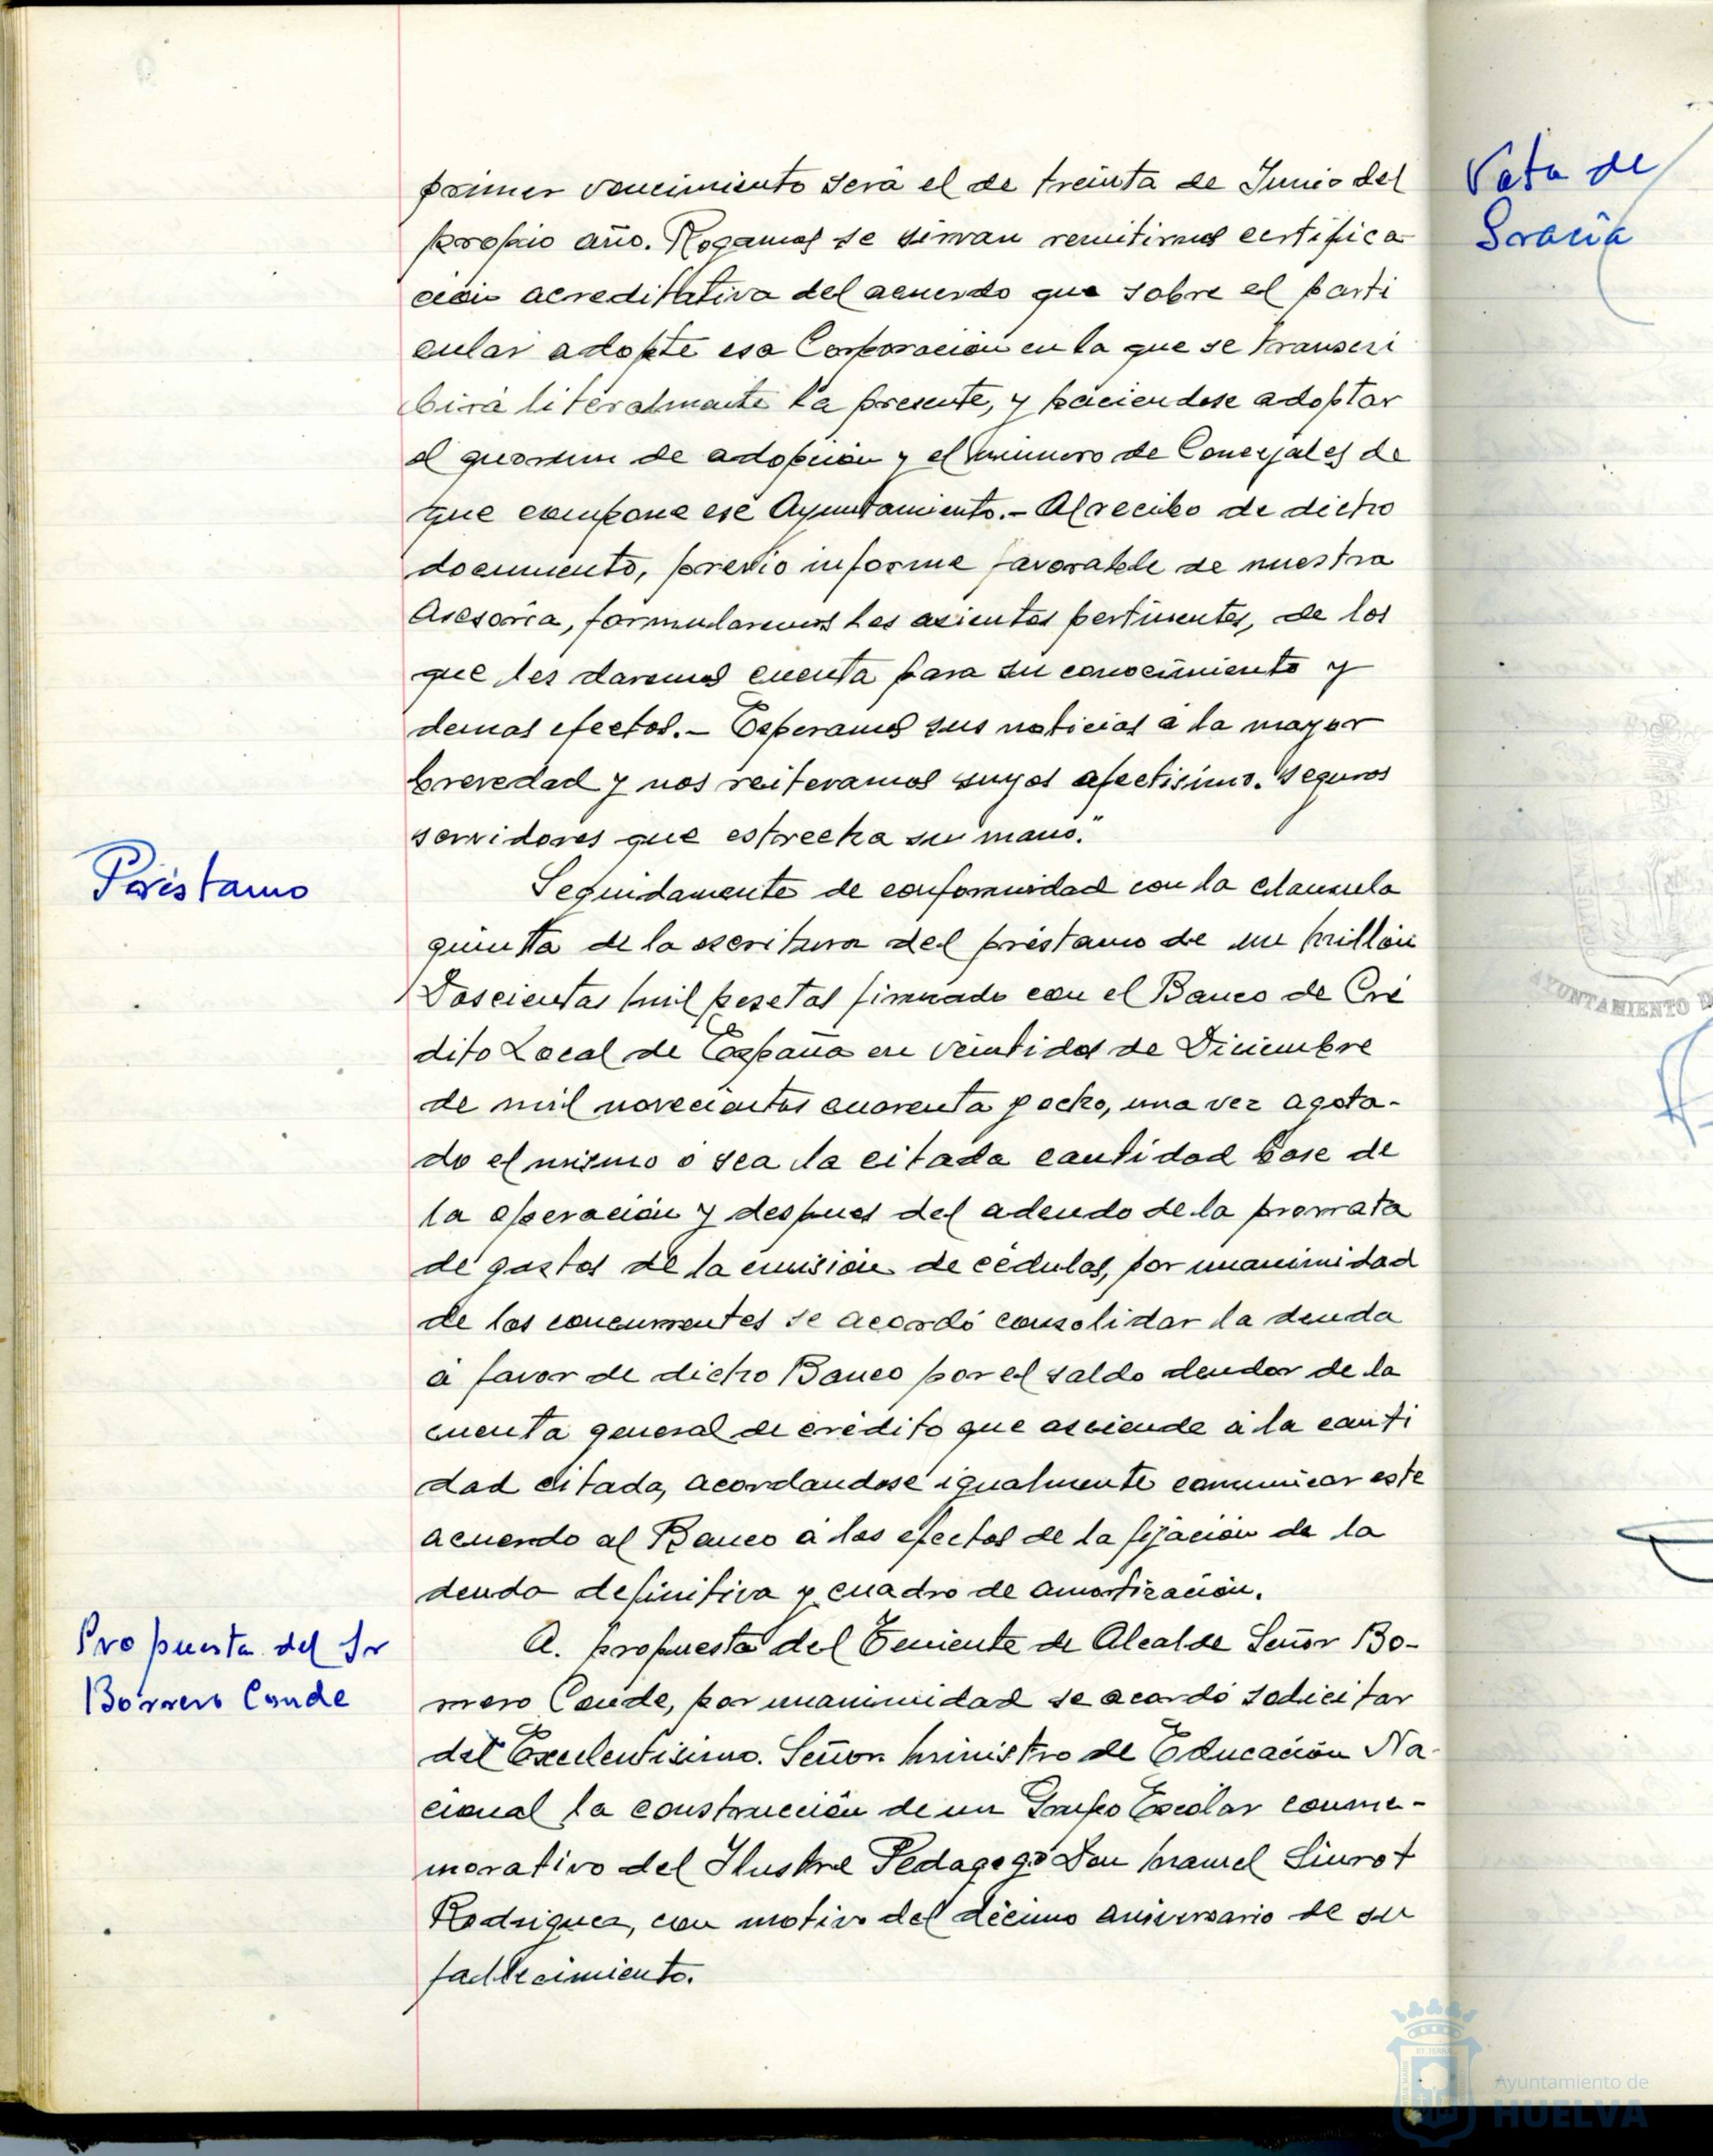 primer vencimiento será el de treinta de Junio del
propio año. Rogamos se sirvan remitirnos certifica
ción acreditativa del acuerdo que sobre el parti
cular adopte esa Corporación en la que se transcri
birá literalmente la presente, y haciendose adoptar
el quorum de adopción y el número de Concejales de
que compone ese Ayuntamiento.- Al recibo de dicho
documento, previo informe favorable de nuestra
Asesoría, formularemos los asientos pertinentes, de los
que les daremos cuenta para su conocimiento y
demas efectos.- Esperamos sus noticias a la mayor
brevedad y nos reiteramos suyos afectisimo. seguros
servidores que estrecha su mano."
Préstamo
Seguidamente de conformidad con la clausula
quinta de la escritura del préstamo de un millón
Doscientas mil pesetas firmado con el Banco de Cré
dito Local de España en veintidos de Diciembre
de mil novecientos cuarenta y ocho, una vez agota-
do el mismo o sea la citada cantidad base de
la operación y despues del adeudo de la prorrata
de gastos de la emisión de cédulas, por unanimidad
de los concurrentes se acordó consolidar la deuda
á favor de dicho Banco por el saldo deudor de la
cuenta general de crédito que asciende á la canti
dad citada, acordandose igualmente comunicar este
acuerdo al Banco á los efectos de la fijación de la
deuda definitiva y cuadro de amortización.
Propuesta del Sr
Borrero Conde
A. propuesta del Teniente de Alcalde Señor Bo-
rrero Conde, por unanimidad se acordó solicitar
del Excelentísimo. Señor Ministro de Educación Na-
cional la construcción de un Grupo Escolar conme-
morativo del Ilustre Pedagogo Don Manuel Siurot
Rodriguez, con motivo del décimo aniversario de su
fallecimiento.
Vota de
Gracia
AYUNTAMIENTO D
Ayuntamiento de
HUELVA